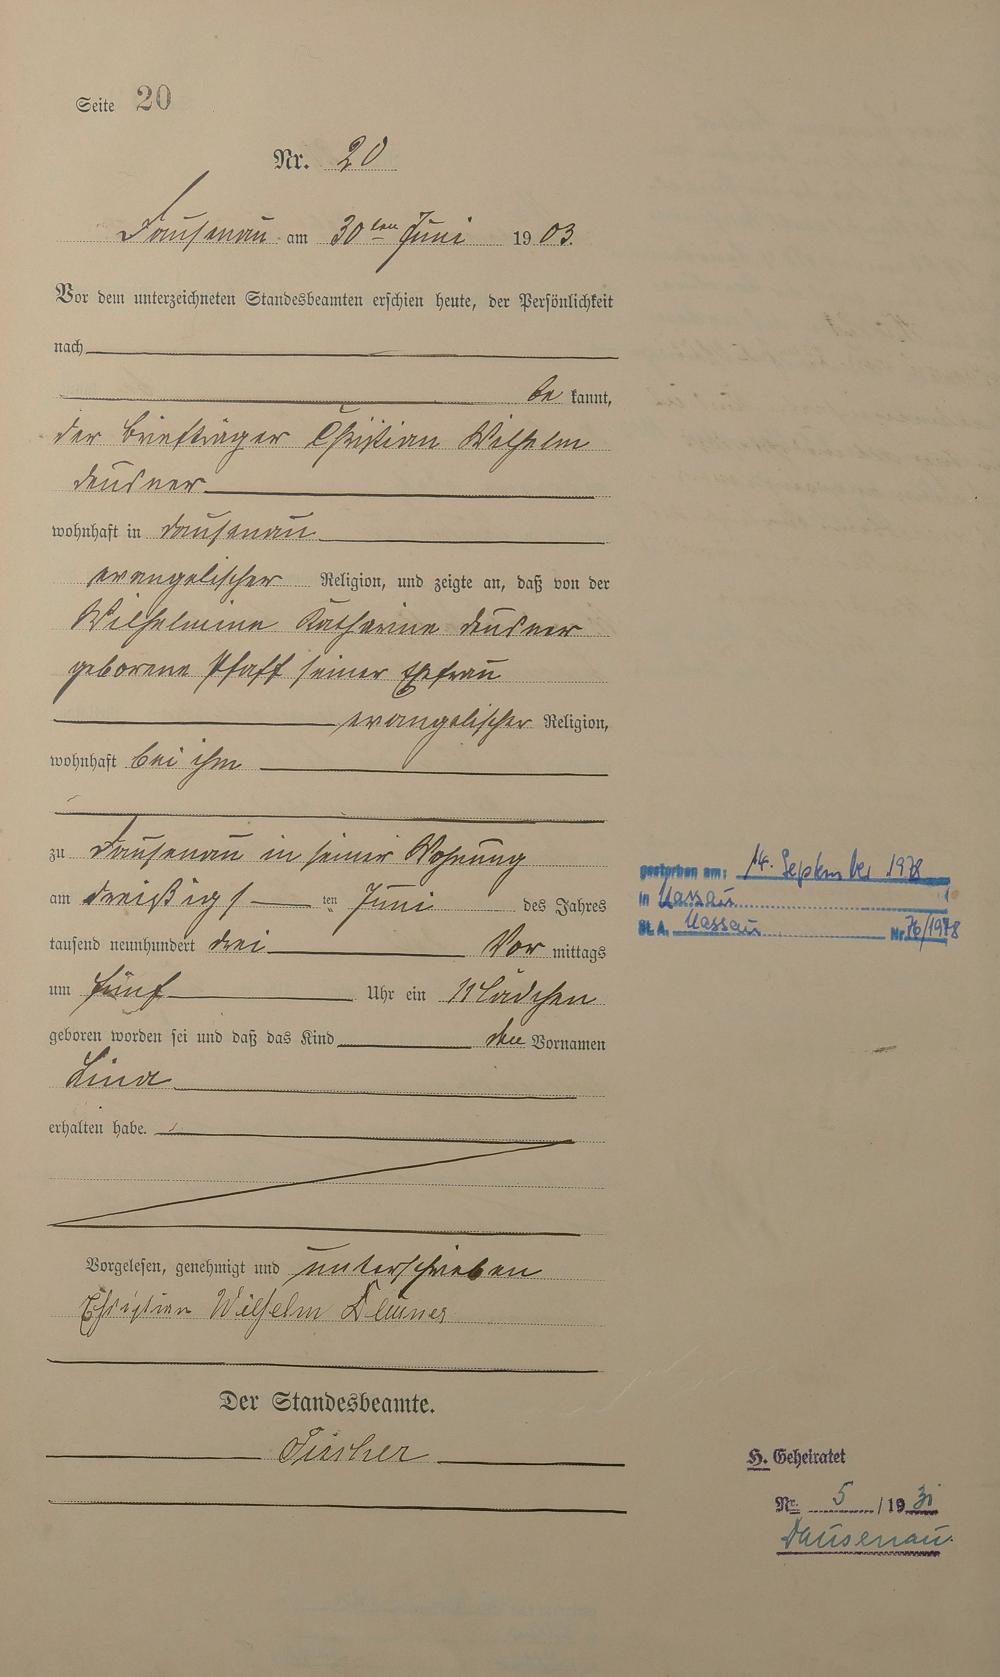 Seite 20
Nr. 20
Dausenau am 30ten Juni 1903.
Vor dem unterzeichneten Standesbeamten erschien heute, der Persönlichkeit
nach
be kannt,
der Briefträger Christian Wilhelm
wohnhaft in Dausenau
evangelischer Religion, und zeigte an, daß von der
Wilhelmine Katharine
geborene Pfaff seiner Ehefrau
evangelischer Religion,
wohnhaft bei ihm
zu Dausenau in seiner Wohnung
am dreißigs ten Juni des Jahres
tausend neunhundert drei Vor mittags
um fünf Uhr ein Mädchen
geboren worden sei und daß das Kind den Vornamen
Lina
erhalten habe.
Vorgelesen, genehmigt und unterschrieben
Christian Wilhelm
Der Standesbeamte.
Fischer
gestorben am: 14. September 1978
in Nassau
St. A. Nassau Nr. 76/1978
H. Geheiratet
Nr. 5 /1931
Dausenau.